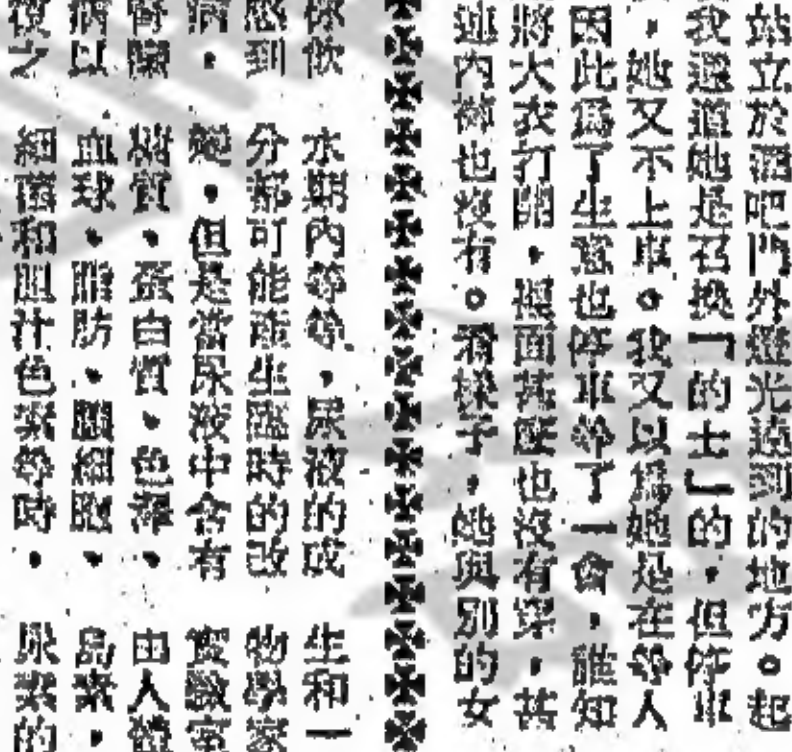 站立於酒吧門外燈光遠到的地方。起
我還道她是召換「的士」的，但停車
，她又不上車。我又以爲她是在等人
因此爲了生意也停車等了一會，誰知
將大衣打開，裡面甚麼也沒有穿，甚
連內褲也沒有。看樣子，她與別的女
你飲
感到
病，
腎臟
病以
後之
水期內等等，尿液的成
分都可能產生臨時的改
變，但是當尿液中含有
糖質、蛋白質、色澤、
血球、脂肪、膿細胞、
細菌和胆汁色素等時，
生和一
物學家
實驗室
由人體
島素，
尿素的